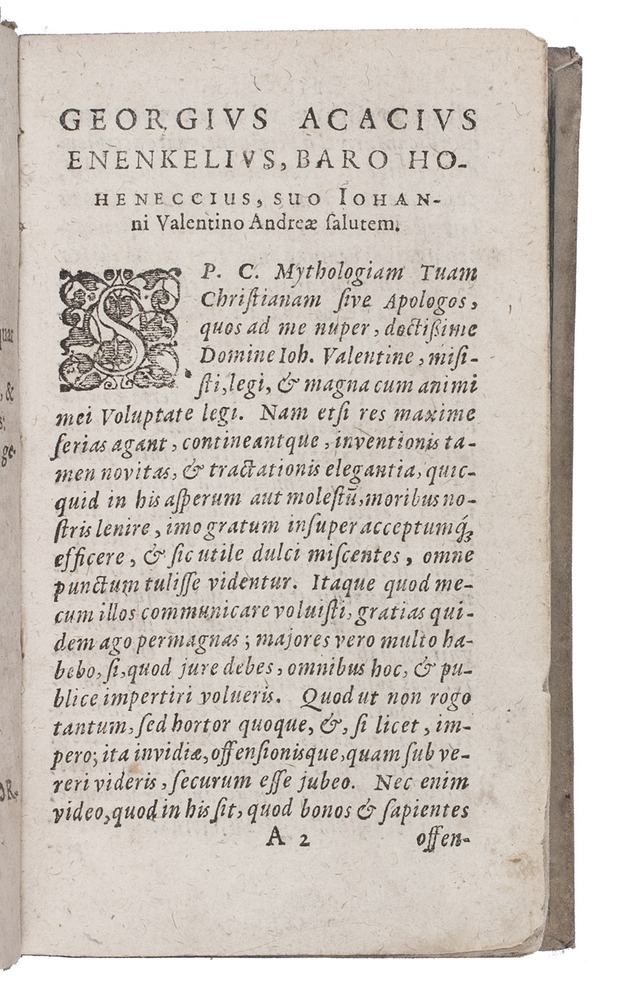 GEORGIVS ACACIVS
ENENKELIVS, BARO HO-
HENECCIUS, SUO IOHAN-
ni Valentino Andreæ ſalutem.
S P. C. Mythologiam Tuam
Chriſtianam ſive Apologos,
quos ad me nuper, doctißime
Domine Ioh. Valentine, miſi-
ſti, legi, & magna cum animi
mei Voluptate legi. Nam etſi res maxime
ſerias agant, contineantque, inventionis ta-
men novitas, & tractationis elegantia, quic-
quid in his aſperum aut moleſtũ, moribus no-
ſtris lenire, imo gratum inſuper acceptumq́;
efficere, & ſic utile dulci miſcentes, omne
punctum tuliſſe videntur. Itaque quod me-
cum illos communicare voluiſti, gratias qui-
dem ago permagnas; majores vero multo ha-
bebo, ſi, quod jure debes, omnibus hoc, & pu-
blice impertiri volueris. Quod ut non rogo
tantum, ſed hortor quoque, &, ſi licet, im-
pero; ita invidiæ, offenſionisque, quam ſub ve-
reri videris, ſecurum eſſe jubeo. Nec enim
video, quod in his ſit, quod bonos & ſapientes
A 2 offen-